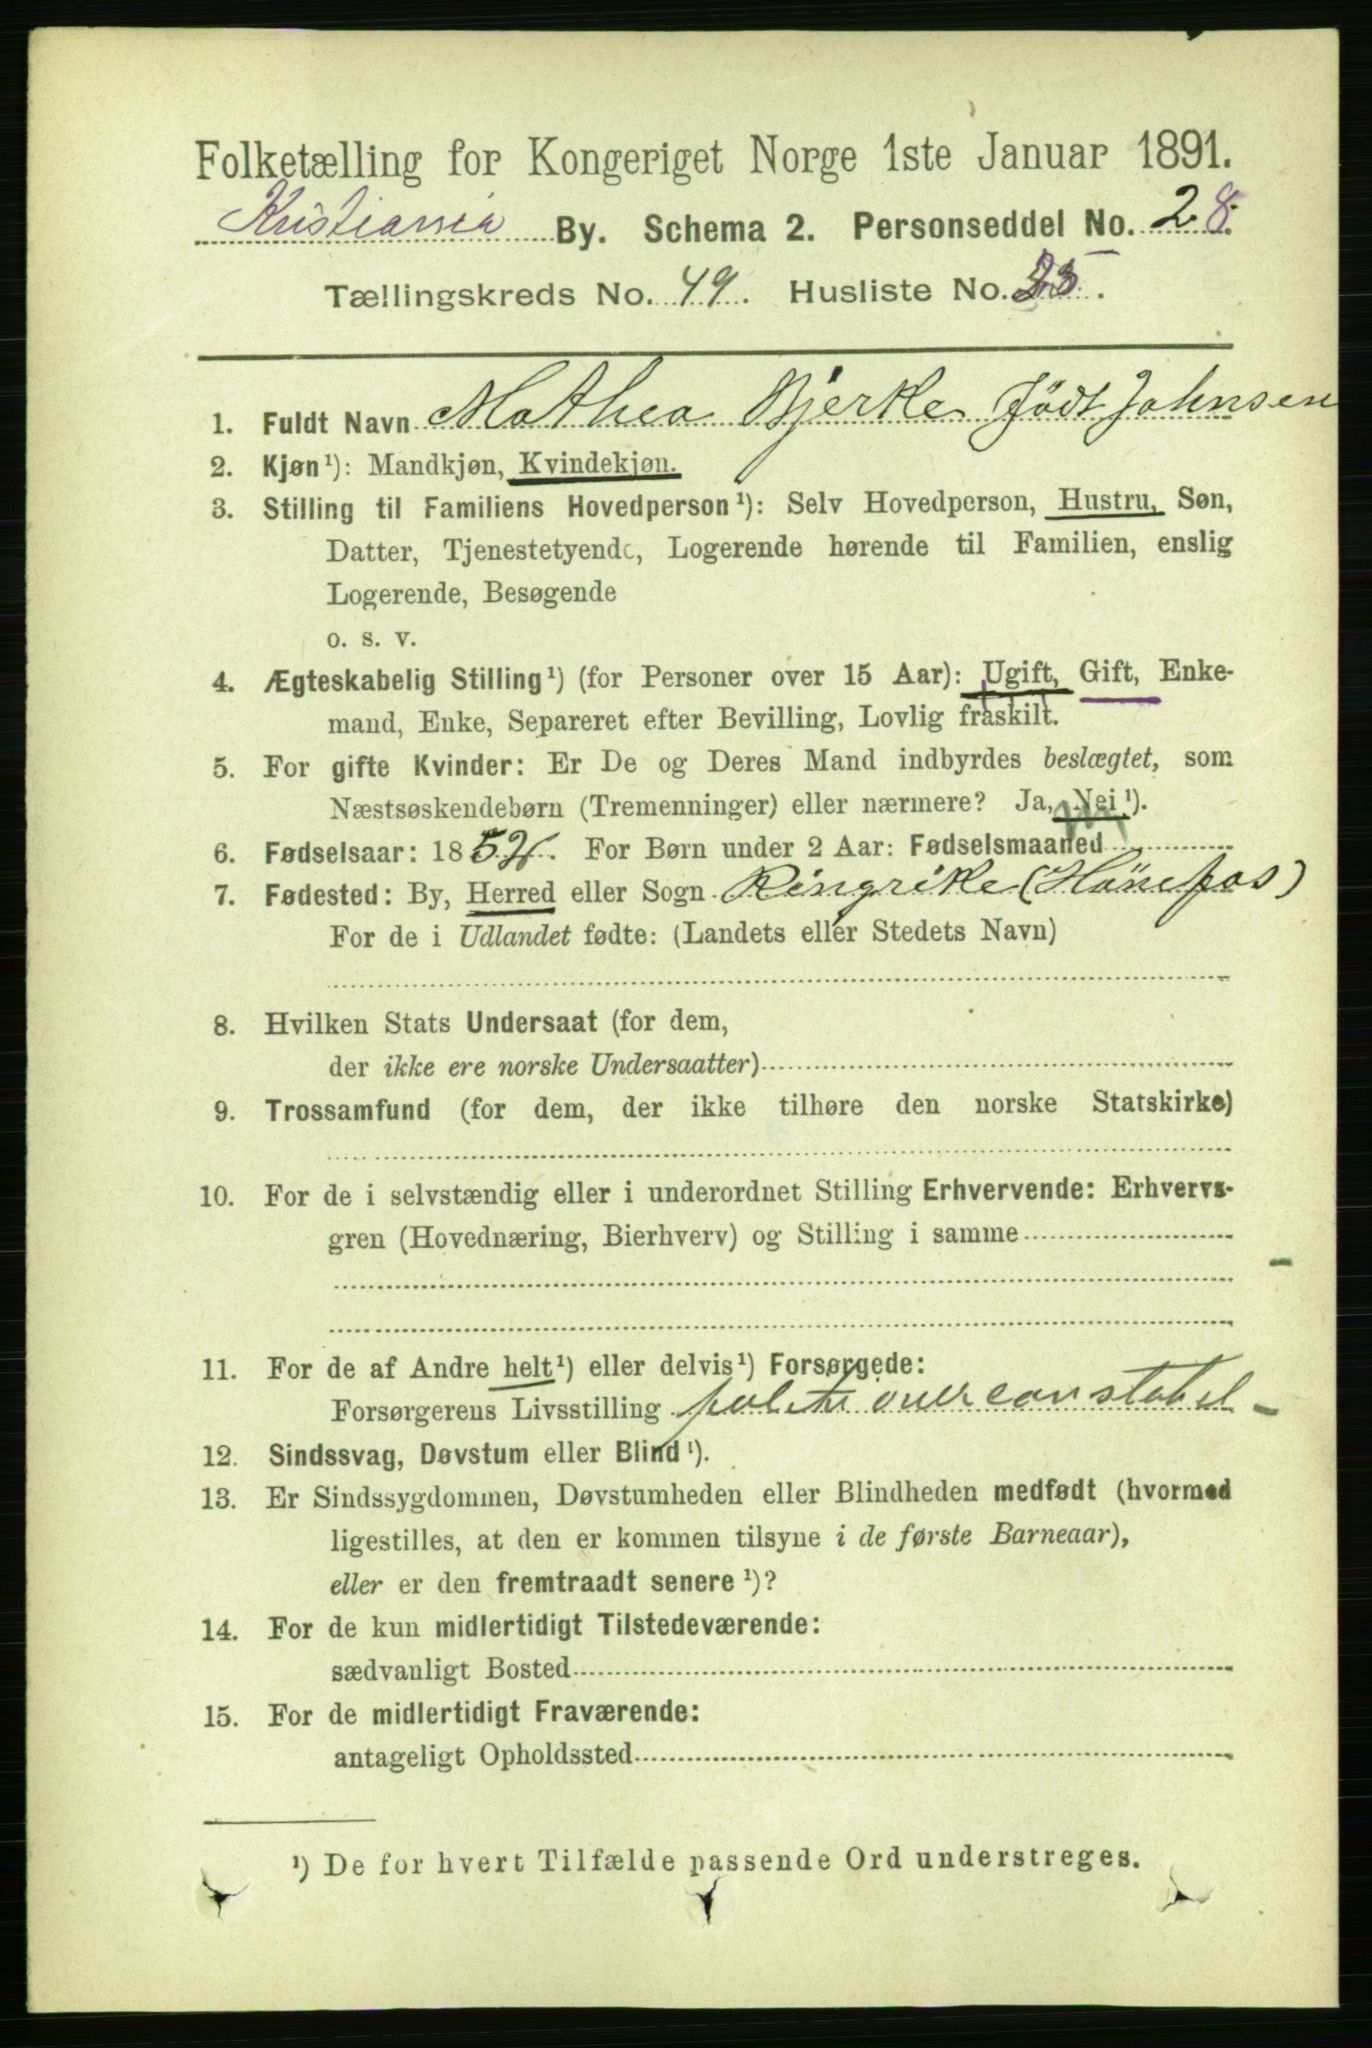 Folketælling for Kongeriget Norge 1ste Januar 1891.
Kristiania By. Schema 2. Personseddel No. 28.
Tællingskreds No. 49. Husliste No. 25.
1. Fuldt Navn Mathea Bjerke Födt Johnsen
2. Kjøn¹): Mandkjøn, Kvindekjøn.
3. Stilling til Familiens Hovedperson¹): Selv Hovedperson, Hustru, Søn,
Datter, Tjenestetyende, Logerende hørende til Familien, enslig
Logerende, Besøgende
o. s. v.
4. Ægteskabelig Stilling¹) (for Personer over 15 Aar): Ugift, Gift, Enke-
mand, Enke, Separeret efter Bevilling, Lovlig fraskilt.
5. For gifte Kvinder: Er De og Deres Mand indbyrdes beslægtet, som
Næstsøskendebørn (Tremenninger) eller nærmere? Ja, Nei¹).
6. Fødselsaar: 1852. For Børn under 2 Aar: Fødselsmaaned
7. Fødested: By, Herred eller Sogn Ringrike (Hönefos)
For de i Udlandet fødte: (Landets eller Stedets Navn)
8. Hvilken Stats Undersaat (for dem,
der ikke ere norske Undersaatter)
9. Trossamfund (for dem, der ikke tilhøre den norske Statskirke)
10. For de i selvstændig eller i underordnet Stilling Erhvervende: Erhvervs-
gren (Hovednæring, Bierhverv) og Stilling i samme
11. For de af Andre helt¹) eller delvis¹) Forsørgede:
Forsørgerens Livsstilling politi overconstabel
12. Sindssvag, Døvstum eller Blind¹).
13. Er Sindssygdommen, Døvstumheden eller Blindheden medfødt (hvormed
ligestilles, at den er kommen tilsyne i de første Barneaar),
eller er den fremtraadt senere¹)?
14. For de kun midlertidigt Tilstedeværende:
sædvanligt Bosted
15. For de midlertidigt Fraværende:
antageligt Opholdssted
¹) De for hvert Tilfælde passende Ord understreges.